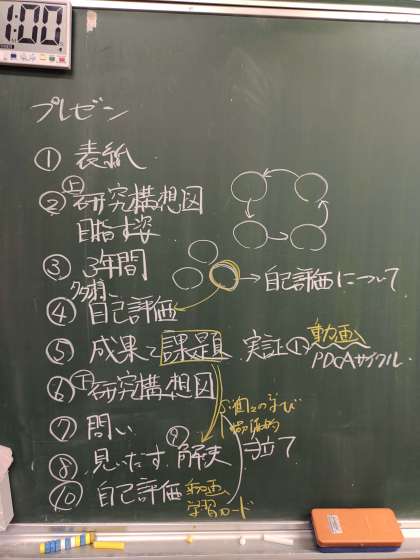 1:00
プレゼン
① 表紙
② 上 研究構想図
目指す姿
③ 3年間
→自己評価について
④ 自己評価
⑤ 成果と課題 実証① 動画へ
PDCAサイクル
⑥ 下 研究構想図
⑦ 問い
個々の学び
協働的
⑧ 見いだす ⑨ 解決 立て
⑩ 自己評価 動画へ
学習カード